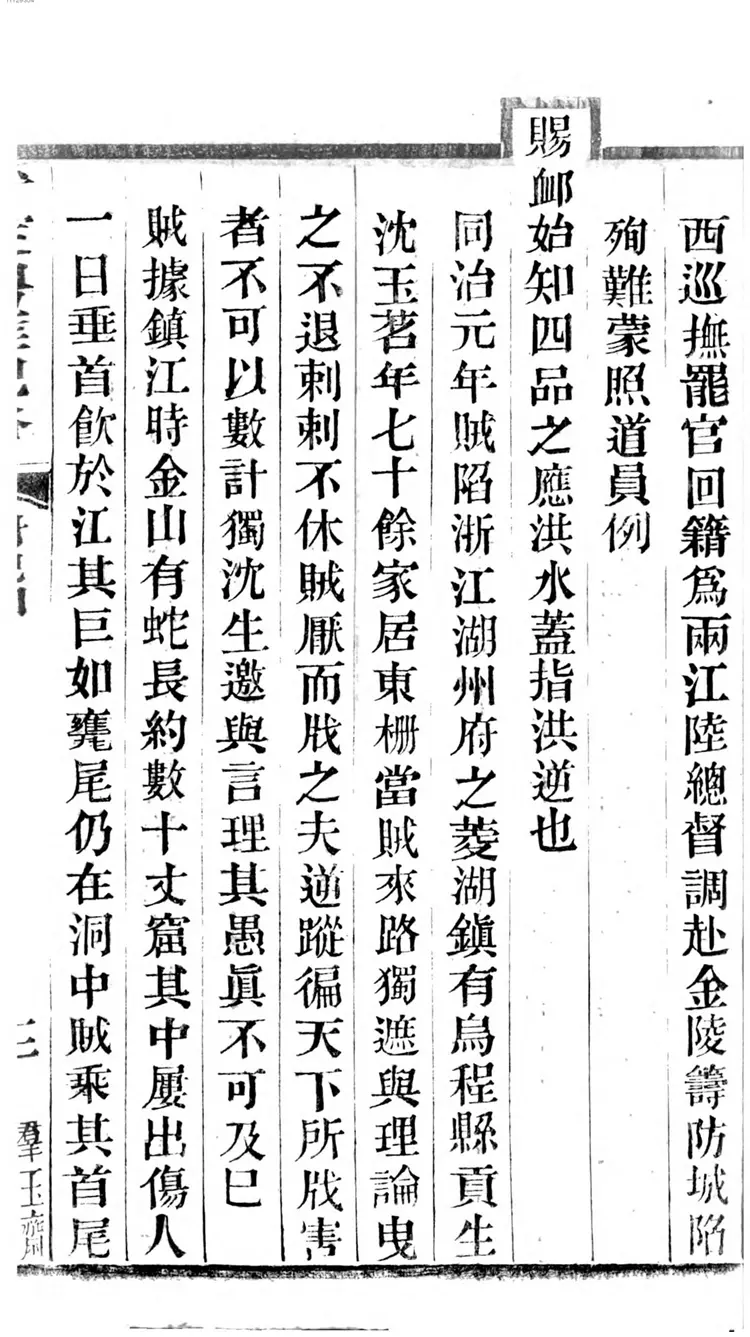 西巡撫罷官回籍爲兩江陸總督調赴金陵籌防城陷
殉難蒙照道員例
賜䘏始知四品之應洪水蓋指洪逆也
同治元年賊陷浙江湖州府之菱湖鎭有烏程縣貢生
沈玉茗年七十餘家居東柵當賊來路獨遮與理論曳
之不退剌剌不休賊厭而戕之夫逆蹤徧天下所戕害
者不可以數計獨沈生邀與言理其愚眞不可及已
賊據鎮江時金山有蛇長約數十丈窟其中屢出傷人
一日垂首飮於江其巨如甕尾仍在洞中賊乘其首尾
三
羣玉齋